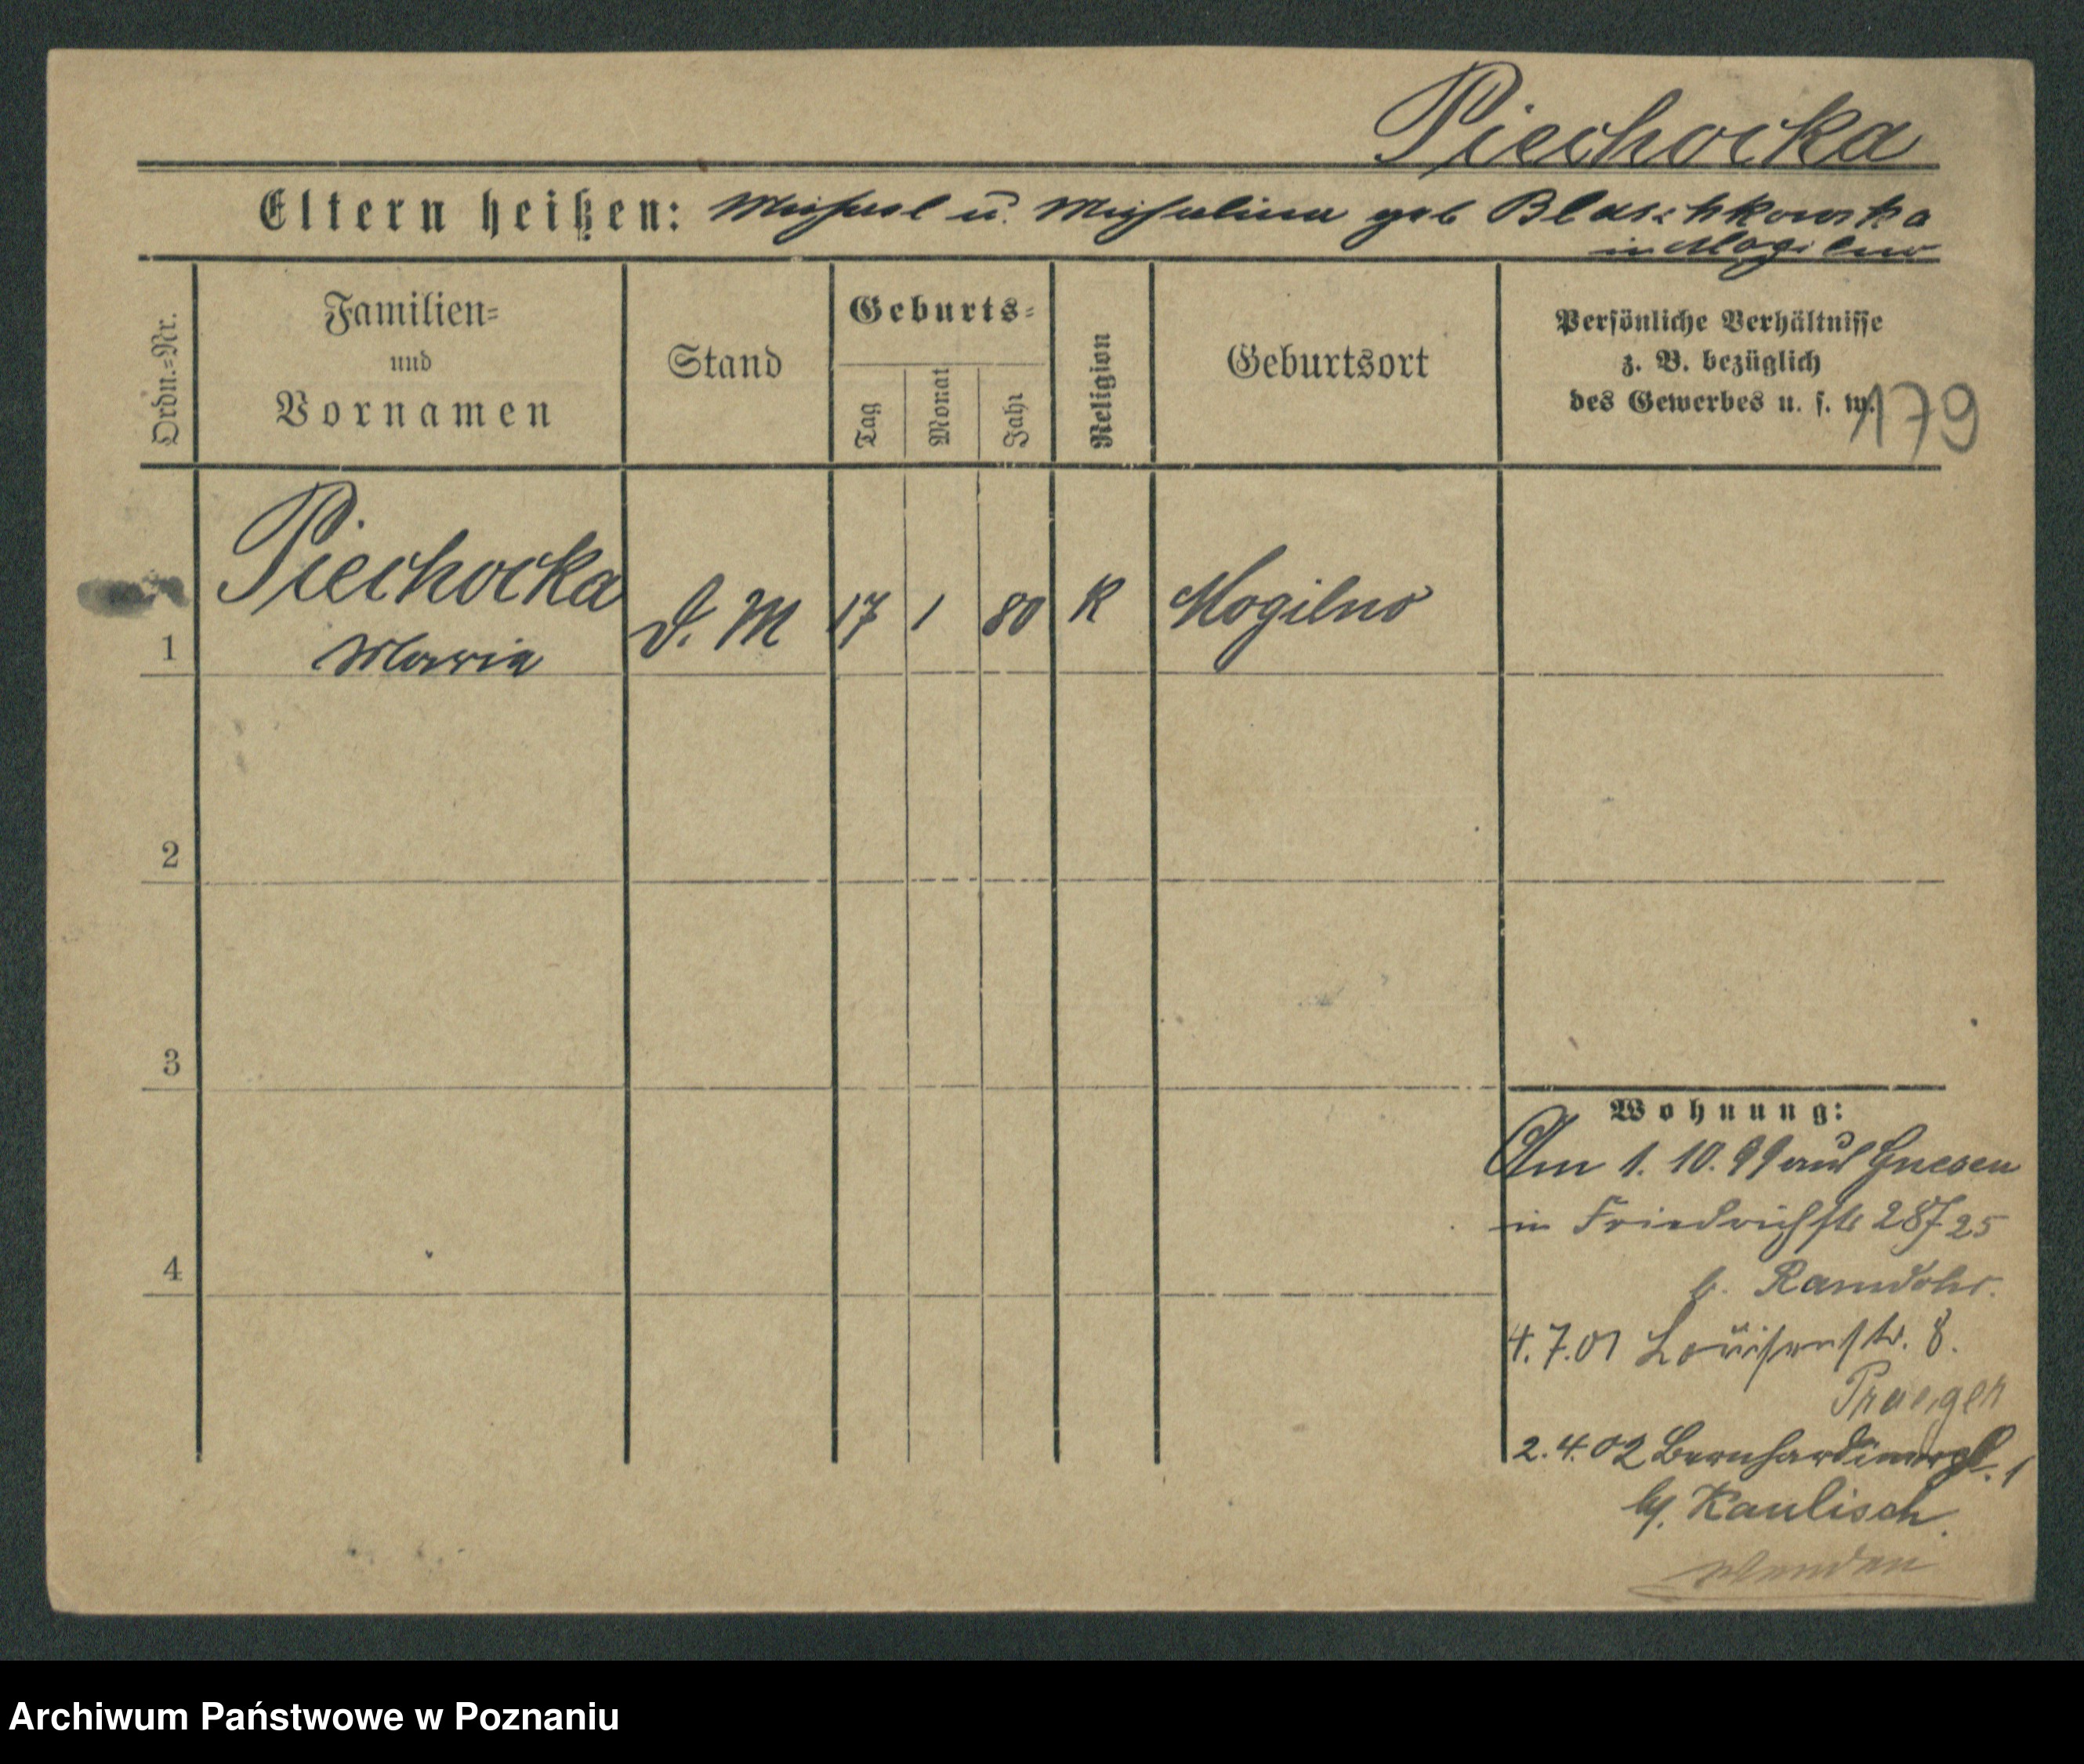 Piechocka
Eltern heißen: Michael u. Michalina geb Blaschkowska
in Mogilno
Ordn.=Nr.
Familien=
und
Vornamen
Stand
Geburts=
Tag
Monat
Jahr
Religion
Geburtsort
Persönliche Verhältnisse
z. B. bezüglich
des Gewerbes u. s. w.
179
1
Piechocka
Maria
D. M
17
1
80
K
Mogilno
2
3
4
Wohnung:
Am 1. 10. 99 aus Gnesen
in Friedrichstr
b. Ramdohr.
4. 7. 01 Louisenstr. 8.
Praeger
2. 4. 02 Bernhardinerpl. 1
bei Kaulisch.
Wenden
Archiwum Państwowe w Poznaniu